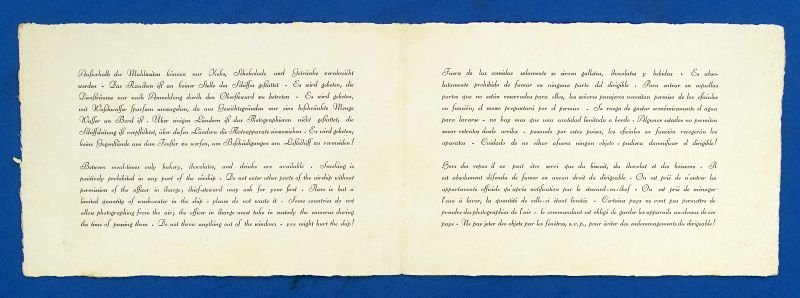 Außerhalb der Mahlzeiten können nur Keks, Schokolade und Getränke verabreicht
werden · Das Rauchen ist an keiner Stelle des Schiffes gestattet · Es wird gebeten, die
Diensträume nur nach Anmeldung durch den Obersteward zu betreten · Es wird gebeten,
mit Waschwasser sparsam umzugehen, da aus Gewichtsgründen nur eine beschränkte Menge
Wasser an Bord ist · Über einigen Ländern ist das Photographieren nicht gestattet; die
Schiffsleitung ist verpflichtet, über diesen Ländern die Photoapparate einzuziehen · Es wird gebeten,
keine Gegenstände aus dem Fenster zu werfen, um Beschädigungen am Luftschiff zu vermeiden!
Between meal-times only bakery, chocolates, and drinks are available · Smoking is
positively prohibited in any part of the airship · Do not enter other parts of the airship without
permission of the officer in charge; chief-steward may ask for your first · There is but a
limited quantity of washwater in the ship · please do not waste it · Some countries do not
allow photographing from the air; the officer in charge must take in custody the cameras during
the time of passing them · Do not throw anything out of the windows · you might hurt the ship!
Fuera de las comidas solamente se sirven galletas, chocolates y bebidas · Es abso-
lutamente prohibido de fumar en ninguna parte del dirigible · Para entrar en aquellas
partes que no están reservadas para ellos, los señores pasajeros necesitan permiso de los oficiales
en función; el mozo preguntará por el permiso · Se ruega de gastar económicamente el agua
para lavarse · no hay mas que una cantidad limitada a bordo · Algunos estados no permiten
sacar retratos desde arriba · pasando por estos países, los oficiales en función recogerán los
aparatos · Cuidado de no echar afuera ningún objeto · pudiera damnificar el dirigible!
Hors des repas il ne peut être servi que du biscuit, du chocolat et des boissons · Il
est absolument défendu de fumer en aucun droit du dirigeable · On est prié de n'entrer les
appartements offends qu'après notification par le steward-en-chef · On est prié de ménager
l'eau à laver, la quantité de celle-ci étant limitée · Certains pays ne vont pas permettre de
prendre des photographies de l'air · le commandant est obligé de garder les appareils au-dessus de ces
pays · Ne pas jeter des objets par les fenêtres, s. v. p., pour éviter des endommagements du dirigeable!